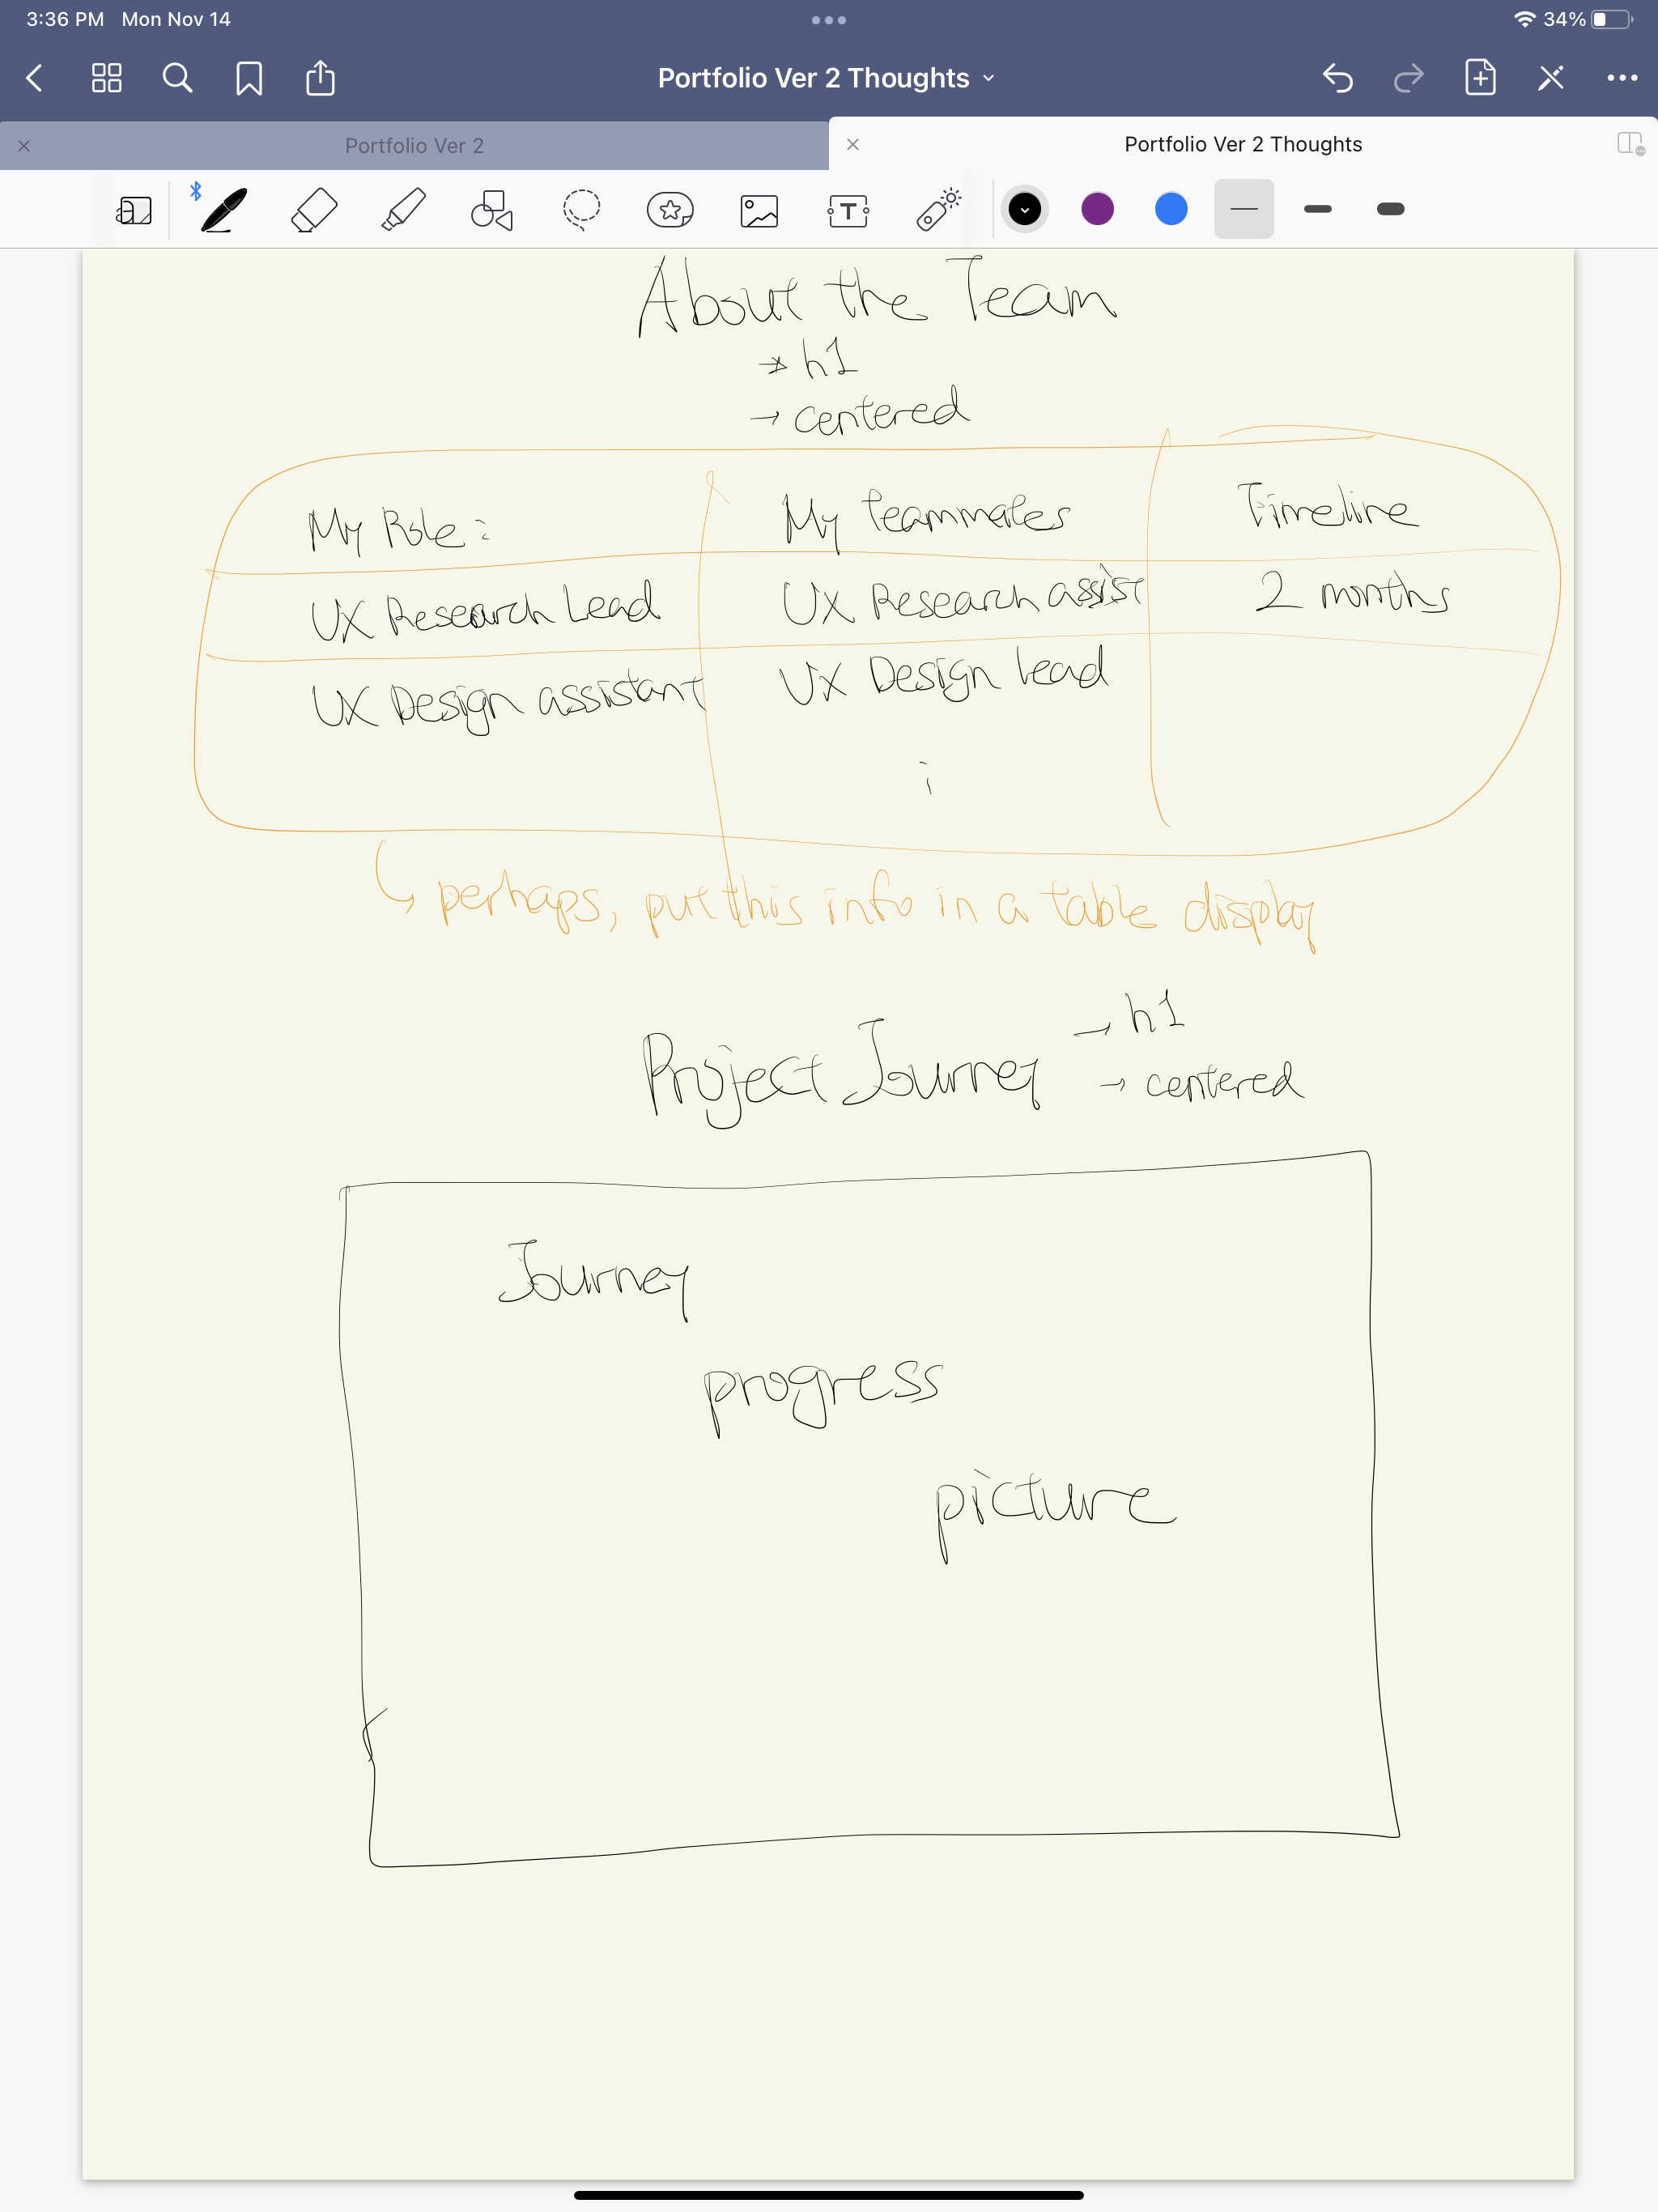 3:36 PM Mon Nov 14
34%
Portfolio Ver 2 Thoughts
Portfolio Ver 2
Portfolio Ver 2 Thoughts
T
About the Team
→ h1
→ centered
My Role: My teammates Timeline
UX Research Lead UX Research assist 2 months
UX Design assistant UX Design lead
perhaps, put this info in a table display
Project Journey → h1
→ centered
Journey
progress
picture